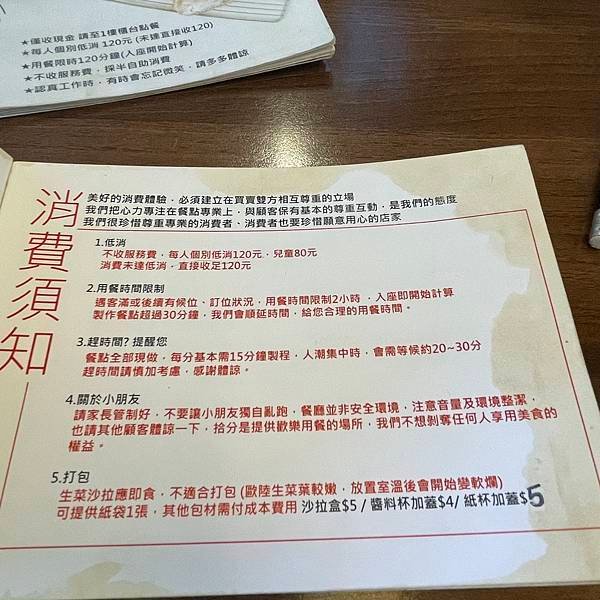 ★僅收現金 請至1樓櫃台點餐
★每人個別低消 120元 (未達直接收120)
★用餐限時120分鐘(入座開始計算)
★不收服務費，採半自助消費
★認真工作時，有時會忘記微笑，請多多體諒
消費須知
美好的消費體驗，必須建立在買賣雙方相互尊重的立場
我們把心力專注在餐點專業上，與顧客保有基本的尊重互動，是我們的態度
我們很珍惜尊重專業的消費者、消費者也要珍惜願意用心的店家
1.低消
不收服務費，每人個別低消120元，兒童80元
消費未達低消，直接收足120元
2.用餐時間限制
遇客滿或後續有候位、訂位狀況，用餐時間限制2小時 ，入座即開始計算
製作餐點超過30分鐘，我們會順延時間，給您合理的用餐時間。
3.趕時間? 提醒您
餐點全部現做，每分基本需15分鐘製程，人潮集中時，會需等候約20~30分
趕時間請慎加考慮，感謝體諒。
4.關於小朋友
請家長管制好，不要讓小朋友獨自亂跑，餐廳並非安全環境，注意音量及環境整潔，
也請其他顧客體諒一下，拾分是提供歡樂用餐的場所，我們不想剝奪任何人享用美食的
權益。
5.打包
生菜沙拉應即食，不適合打包 (歐陸生菜葉較嫩，放置室溫後會開始變軟爛)
可提供紙袋1張，其他包材需付成本費用 沙拉盒$5 / 醬料杯加蓋$4/ 紙杯加蓋$5